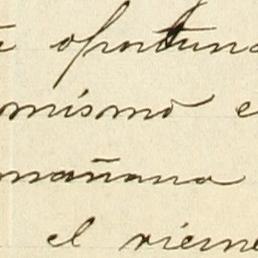 oportuna
mismo e
mañana
el vierne